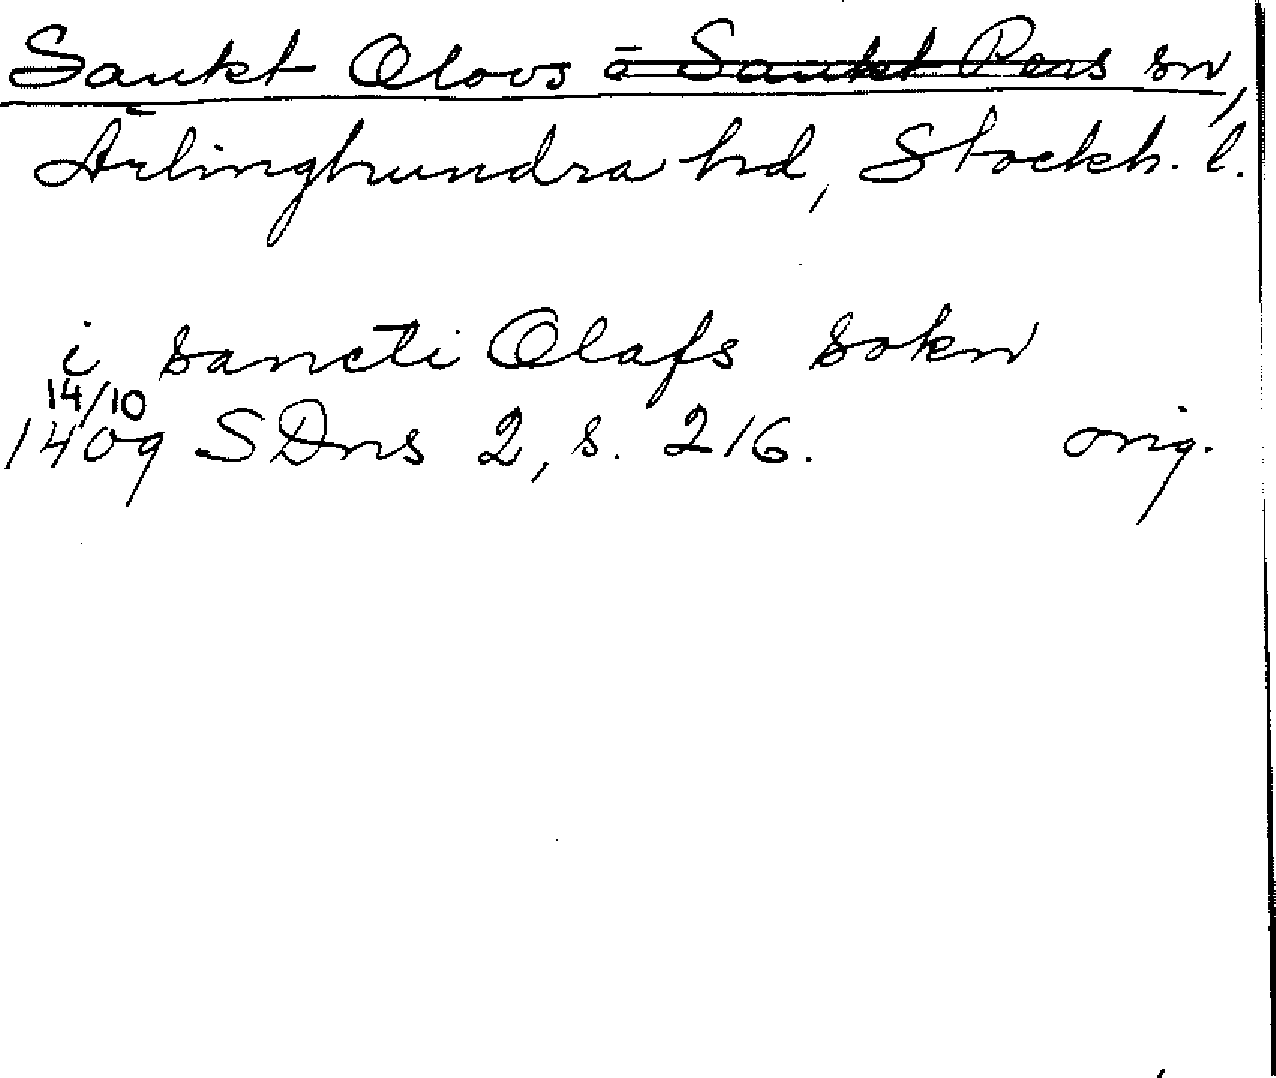 Sankt Olovs o Sankt Pers sn,
Ärlinghundra hd, Stockh. l.
i sancti Olafs sokn
14/10
1409 SDns 2, s. 216. orig.